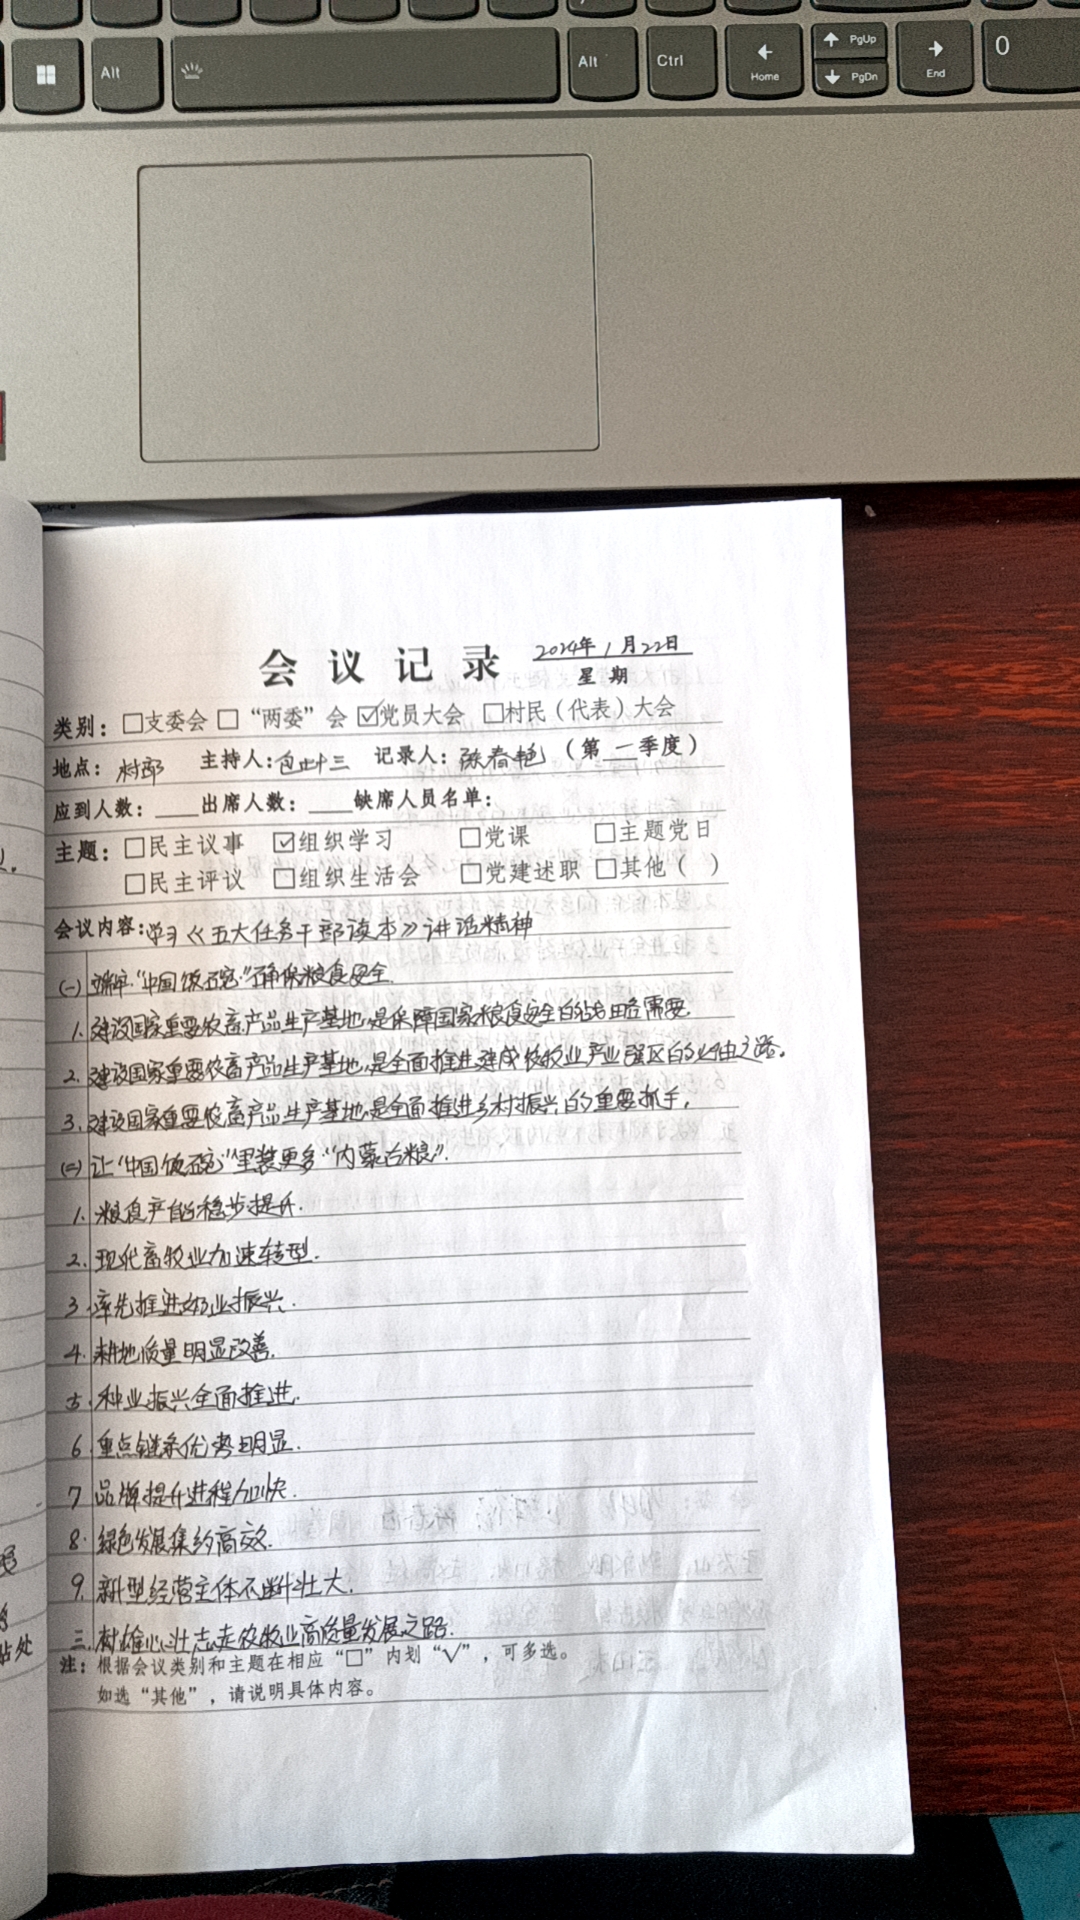 Alt
Alt
Ctrl
Home
PgUp
PgDn
End
0
会议记录
2024年1月22日
星期
类别：□支委会 □“两委”会 ☑党员大会 □村民（代表）大会
地点：村部 主持人：包十三 记录人：陈春艳（第一季度）
应到人数：____出席人数：____缺席人员名单：
主题：□民主议事 ☑组织学习 □党课 □主题党日
□民主评议 □组织生活会 □党建述职 □其他（ ）
会议内容：学习《五大任务干部读本》讲话精神
(一) 端牢“中国饭碗”确保粮食安全.
1. 建设国家重要农畜产品生产基地,是保障国家粮食安全的战略需要.
2. 建设国家重要农畜产品生产基地,是全面推进建成农牧业产业强区的必由之路.
3. 建设国家重要农畜产品生产基地,是全面推进乡村振兴的重要抓手,
(二) 让“中国饭碗”里装更多“内蒙古粮”.
1. 粮食产能稳步提升.
2. 现代畜牧业加速转型.
3. 率先推进奶业振兴.
4. 耕地质量明显改善.
5. 种业振兴全面推进.
6. 重点链条优势明显.
7 品牌提升进程加快.
8. 绿色发展集约高效.
9. 新型经营主体不断壮大.
三. 树雄心壮志走农牧业高质量发展之路.
注：根据会议类别和主题在相应“□”内划“√”，可多选。
如选“其他”，请说明具体内容。
站处